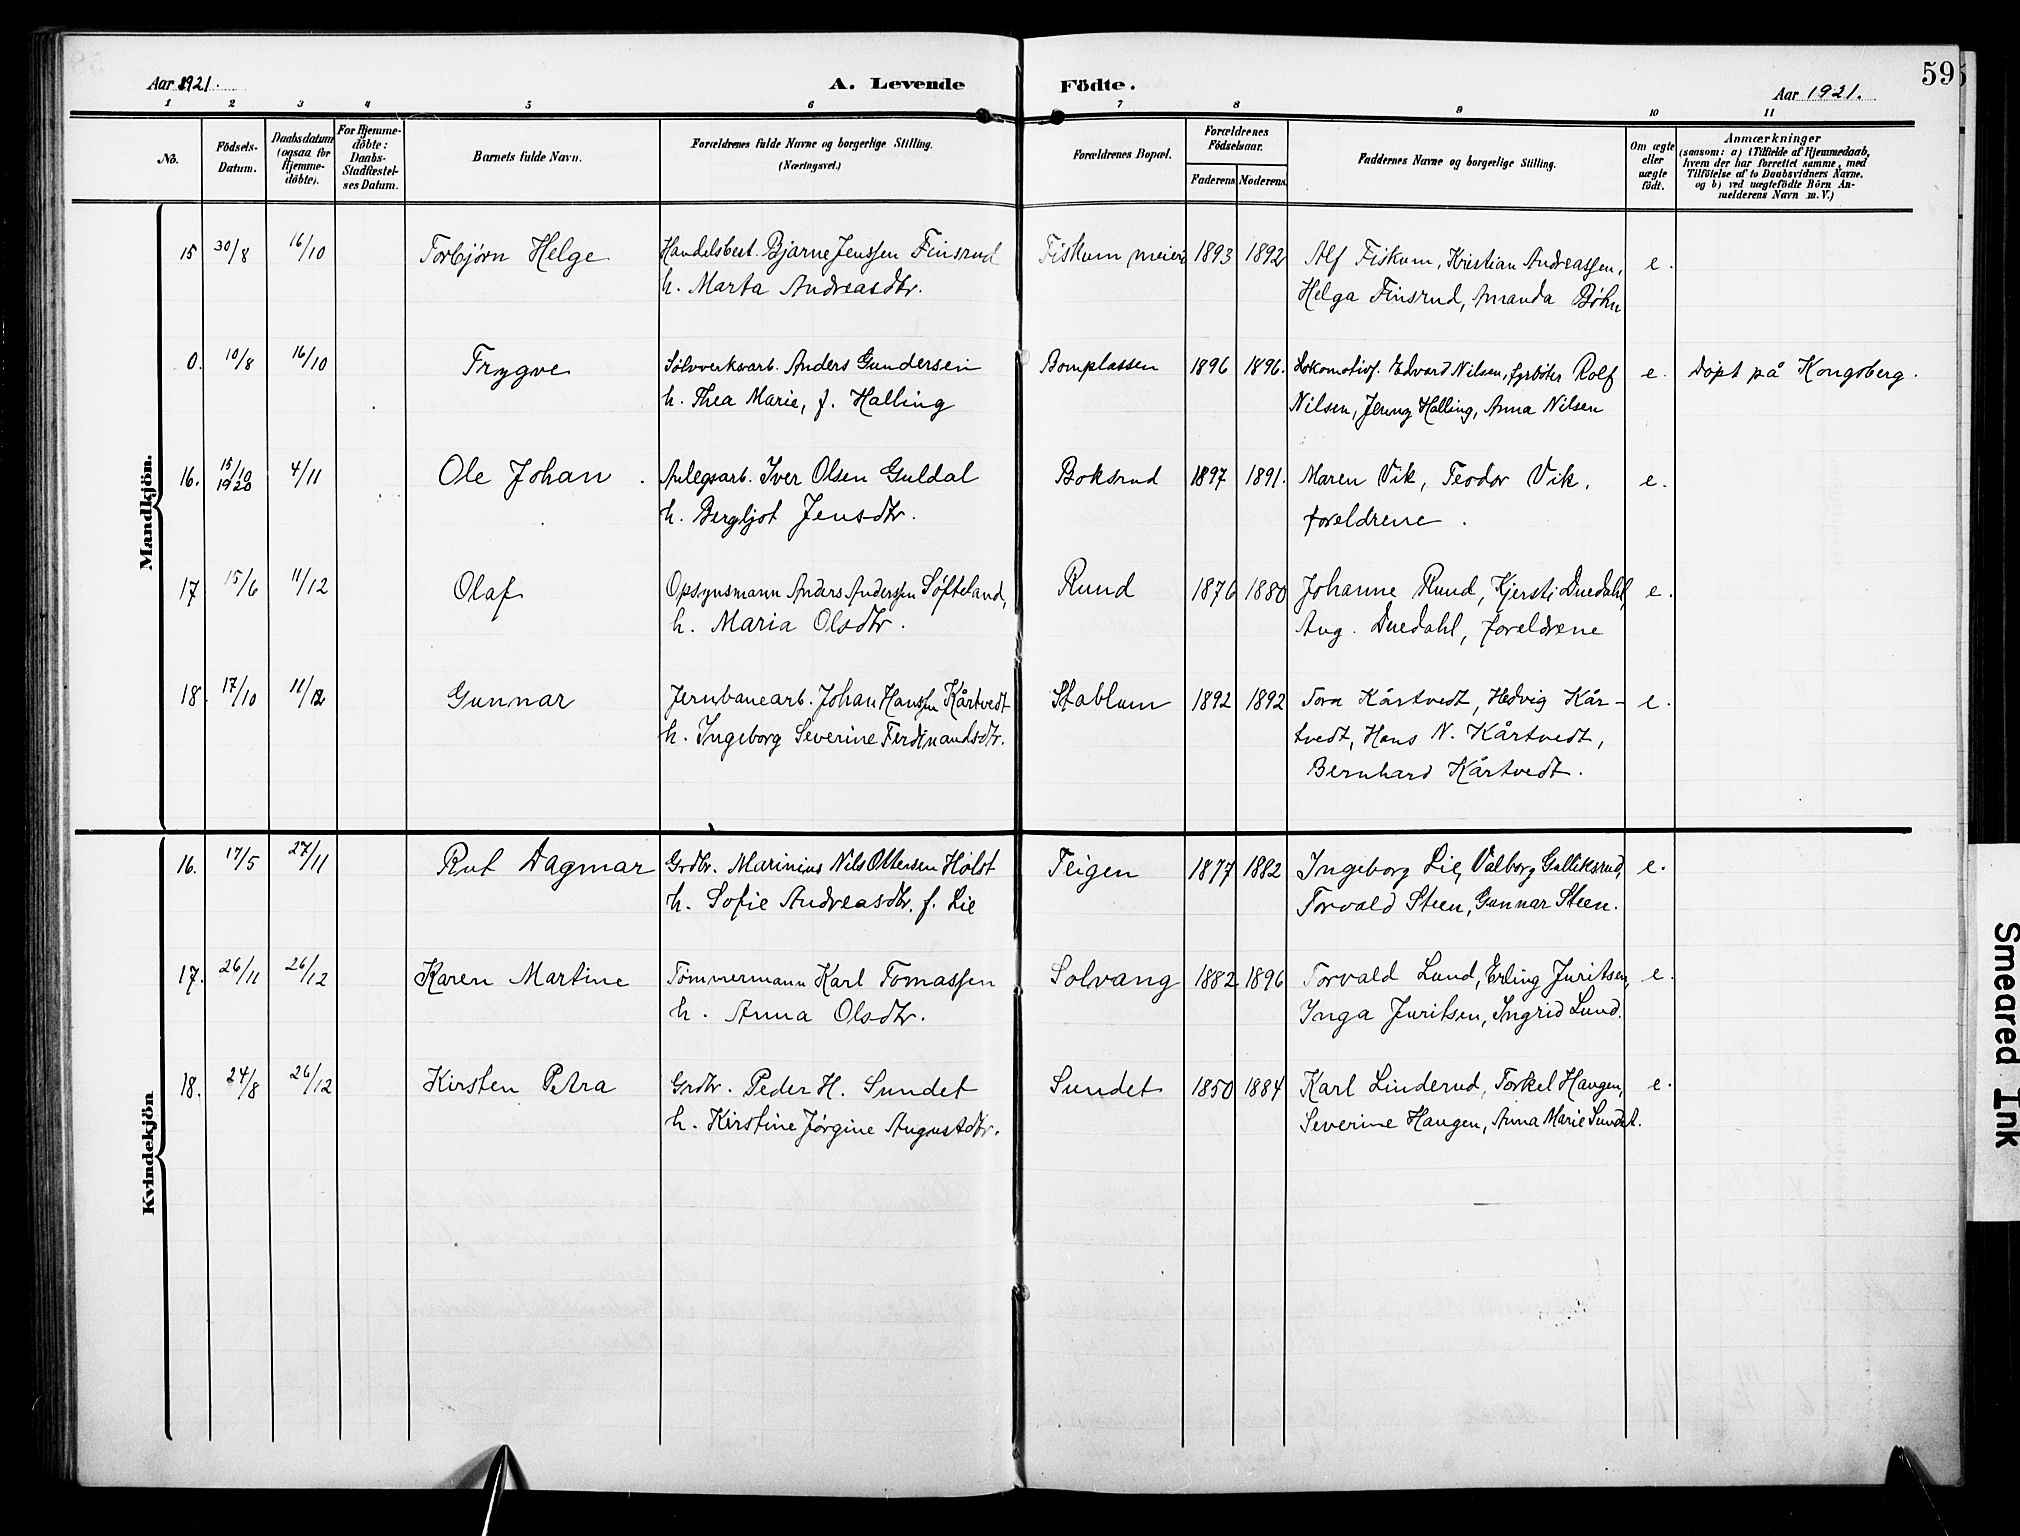 59
Aar 1921.
A. Levende
Födte.
Aar 1921.
1 2 3 4 5 6 7 8 9 10 11
No.
Födsels-
Datum.
Daabsdatum
(ogsaa for
Hjemme-
döbte).
For Hjemme-
döbte:
Daabs-
Stadfæstel-
ses Datum.
Barnets fulde Navn.
Forældrenes fulde Navne og borgerlige Stilling.
(Næringsvei.)
Forældrenes Bopæl.
Forældrenes
Födselsaar.
Faderens.
Moderens.
Faddernes Navne og borgerlige Stilling.
Om ægte
eller
uægte
födt.
Anmærkninger
(saasom: a) i Tilfælde af Hjemmedaab,
hvem der har forrettet samme, med
Tilföielse af to Daabsvidners Navne.
og b) ved uægtefödte Börn An-
melderens Navn m. V.)
Mandkjön.
15 30/8 16/10 Torbjørn Helge Handelsbest. Bjarne Jenssen Finsrud Fiskum meieri 1893 1892 Alf Fiskum, Kristian Andreassen, e.
h. Marta Andreasdtr. Helga Finsrud, Amanda Bøhn
0. 10/8 16/10 Trygve Sølvverksarb. Anders Gundersen Bomplassen 1896 1896. Lokomotivf. Edvard Nilsen, fyrbøter Rolf e. Døpt på Kongsberg.
h. Thea Marie, f. Halling Nilsen, Jenny Halling, Anna Nilsen
16. 15/10 1920 4/11 Ole Johan. Anlegsarb. Iver Olsen Guldal Boksrud 1897 1891. Maren Vik, Teodor Vik, e.
h. Bergljot Jensdtr. foreldrene.
17 15/6 11/12 Olaf Opsynsmann Anders Anderssen Søfteland, Rund 1876 1880 Johanne Rund, Kjersti Duedahl, e.
h. Maria Olsdtr. Aug. Duedahl, foreldrene
18. 17/10 11/12 Gunnar Jernbanearb. Johan Hanssen Kårtvedt Stablum 1892 1892 Tora Kårtvedt, Hedvig Kår- e.
h. Ingeborg Severine Ferdinandsdtr. tvedt, Hans N. Kårtvedt,
Bernhard Kårtvedt.
Kvindekjön
16. 17/5 27/11 Rut Dagmar Grdbr. Marinius Nils Ottersen Holst Teigen 1877 1882 Ingeborg Lie, Valborg Gulliksrud, e.
h. Sofie Andreasdtr. f. Lie Torvald Steen, Gunnar Steen.
17. 26/11 26/12 Karen Martine Tømmermann Karl Tomassen Solvang 1882 1896 Torvald Lund, Erling Juritsen, e.
h. Anna Olsdtr. Inga Juritsen, Ingrid Lund.
18. 24/8 26/12 Kirsten Petra Grdbr. Peder H. Sundet Sundet 1850 1884 Karl Linderud, Torkel Haugen, e.
h. Kirstine Jørgine Augustdtr. Severine Haugen, Anna Marie Sundet.
Smeared Ink